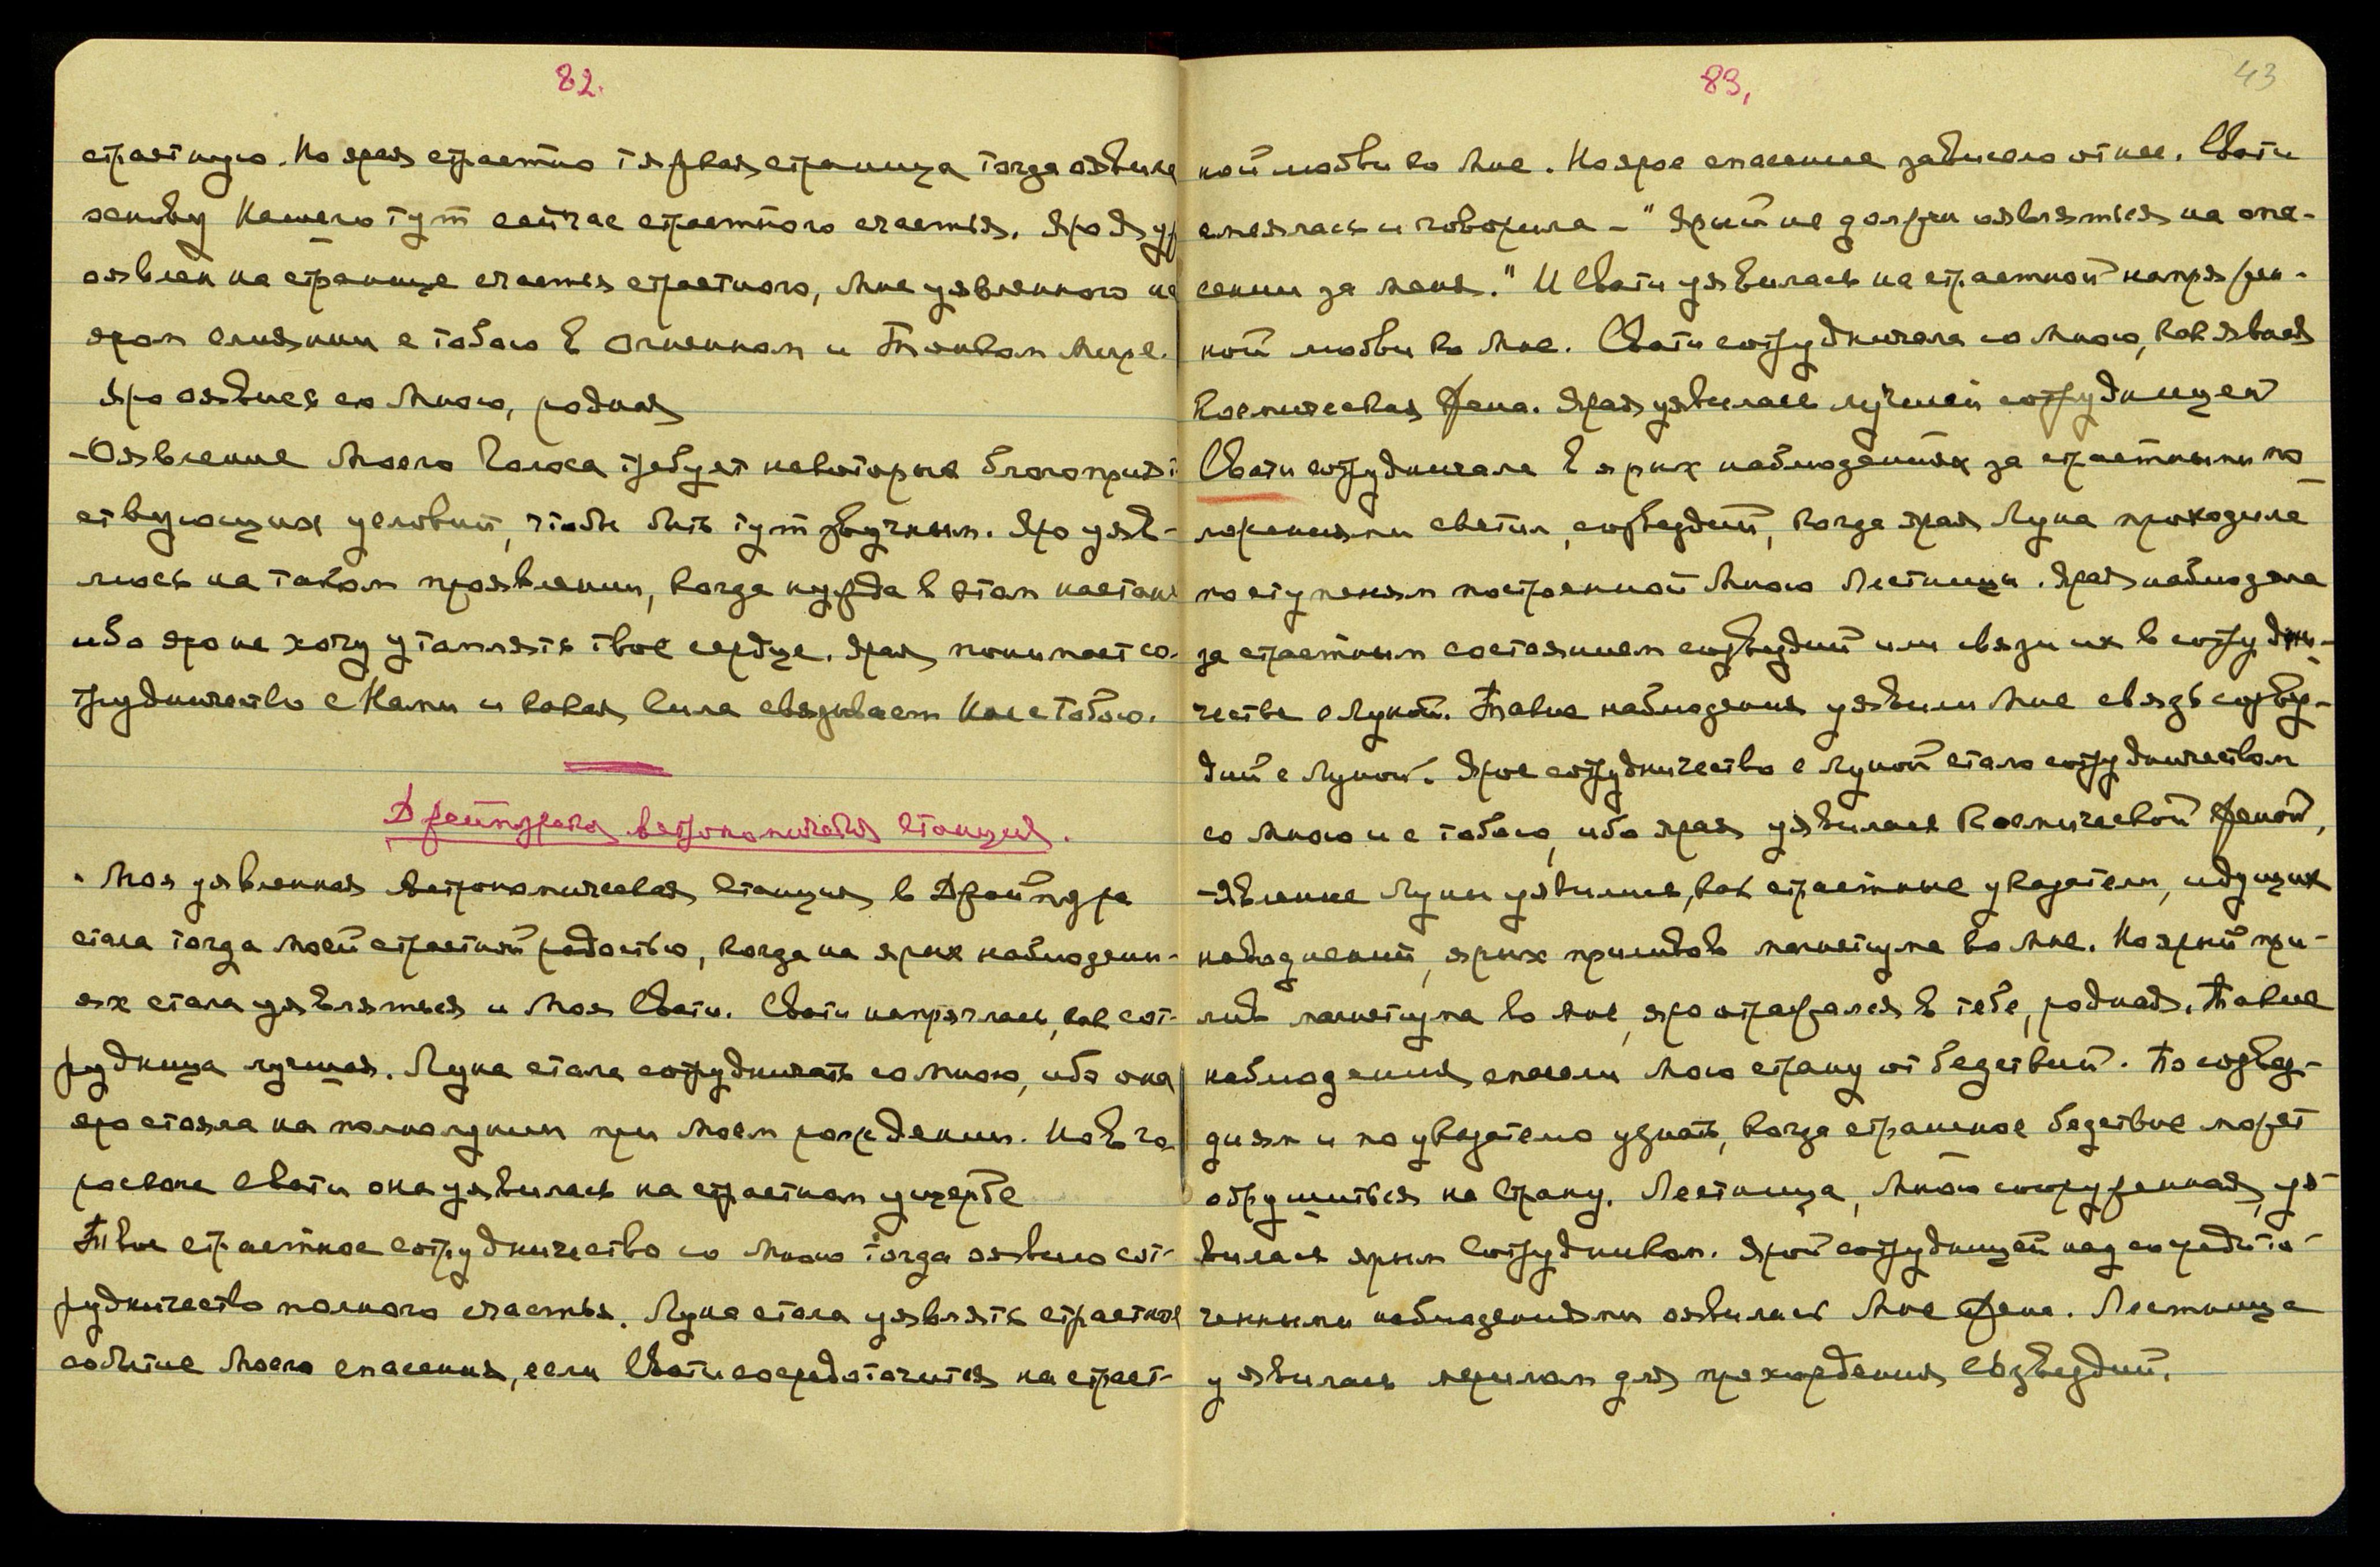 82.
страстную. Но ярая страстно тяжкая страница тогда оявила
основу Нашего тут сейчас страстного счастья. Яро Я уже
оявлен на странице счастья страстного, Мне уявленного на
яром слиянии с тобою в Огненном и Тонком Мире.
Яро оявися со Мною, родная
-Оявление Моего Голоса требует некоторые благоприят-
ствующих условий, чтобы быть тут звучным. Яро уяв-
люсь на таком проявлении, когда нужда в этом настане
ибо яро не хочу утомлять твое сердце. Ярая понимает со-
трудничество с Нами и какая Сила связывает Нас с Тобою.
Джайпурская астрономическая Станция.
. Моя уявленная Астрономическая Станция в Джайпуре
стала тогда моей страстной радостью, когда на ярых наблюдени-
ях стала уявляться и Моя Свати. Свати напряглась, как сот-
рудница лучшая. Луна стала сотрудничать со Мною, ибо она
яро стояла на полнолунии при Моем рождении. Но в го-
роскопе Свати она уявилась на страстном ущербе
Твое страстное сотрудничество со Мною тогда оявило сот-
рудничество полного счастья. Луна стала уявлять страстное
событие Моего спасения, если Свати сосредоточится на страст-
83,
43
ной любви ко Мне. Но ярое спасение зависело от нее. Свати
смеялась и говорила - "Ярый не должен оявляться на опа-
сении за меня." И Свати уявилась на страстной напряжен-
ной любви ко Мне. Свати сотрудничала со Мною, как явная
Космическая Жена. Ярая уявилась лучшей сотрудницей
Свати сотрудничала в ярых наблюдениях за страстными по-
ложениями светил, созвездий, когда ярая Луна проходила
по ступеням построенной Мною Лестницы. Ярая наблюдала
за страстным состоянием созвездий или связи их в сотрудни-
честве с Луной. Такие наблюдения уявили Мне связь созвез-
дий с Луной. Ярое сотрудничество с Луной стало сотрудничеством
со Мною и с тобою, ибо ярая уявилась Космической Женой,
-Явление Луны уявилися, как страстные указатели, идущих
наводнений, ярых приливов магнетизма ко Мне. Но ярый при-
лив магнетизма ко Мне, яро отражался в тебе, родная. Такие
наблюдения спасали Мою страну от бедствий. По созвез-
диям и по указателю узнать, когда страшное бедствие может
обрушиться на Страну. Лестница, Мною сооруженная, уя-
вилась ярым Сотрудником. Ярой сотрудницей над сосредото-
ченными наблюдениями оявилась Мне Жена. Лестница
уявилась мерилом для прохождения Созвездий.